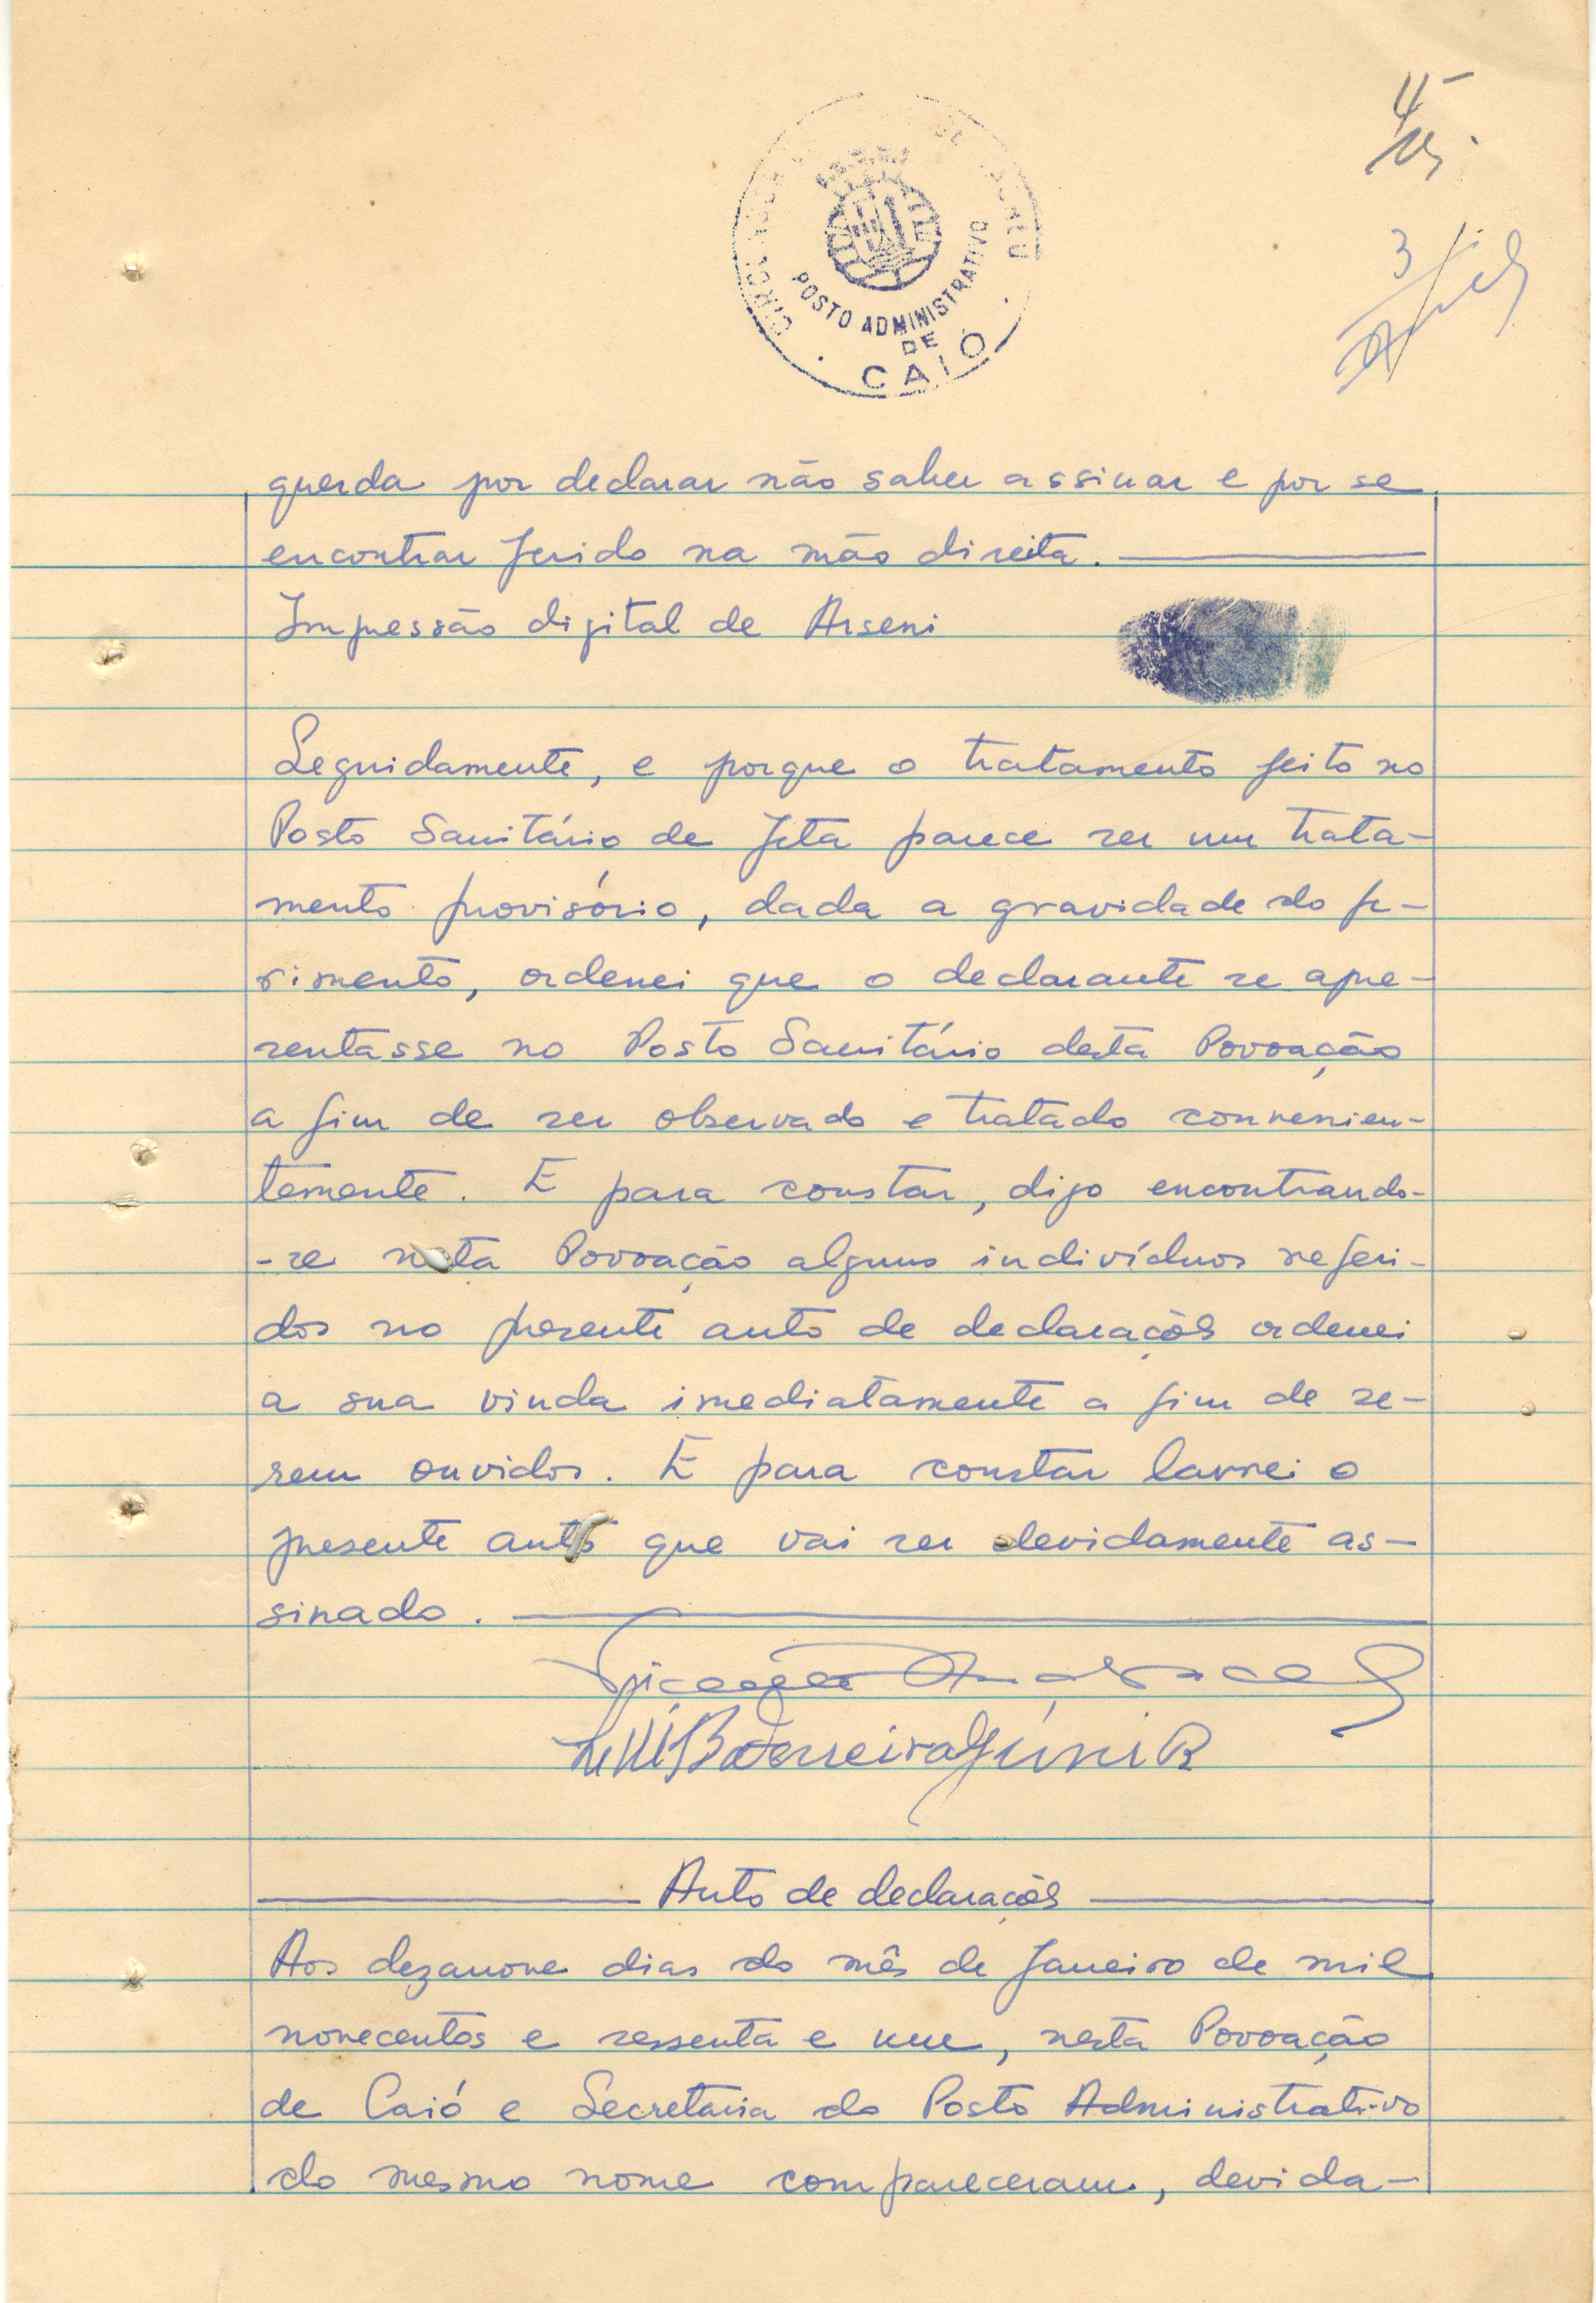 4
3
POSTO ADMINISTRATIVO
DE
CAIÓ
querda por declarar não saber assinar e por se
encontrar ferido na mão direita.
Impressão digital de Arseni
Seguidamente, e porque o tratamento feito no
Posto Sanitário de Jeta parece ser um trata-
mento provisório, dada a gravidade do fe-
rimento, ordenei que o declarante se apre-
sentasse no Posto Sanitário desta Povoação
a fim de ser observado e tratado convenien-
temente. E para constar, digo encontrando-
-se nesta Povoação alguns indivíduos referi-
dos no presente auto de declarações ordenei
a sua vinda imediatamente a fim de se-
rem ouvidos. E para constar lavrei o
presente auto que vai ser devidamente as-
sinado.
Auto de declarações
Aos dezanove dias do mês de Janeiro de mil
novecentos e sessenta e um, nesta Povoação
de Caió e Secretaria do Posto Administrativo
do mesmo nome compareceram, devida-